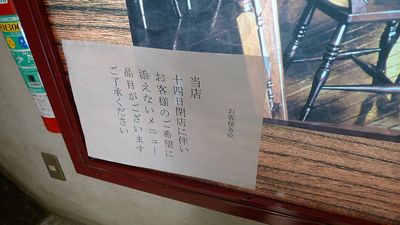 お客様各位
当店
十四日閉店に伴い
お客様のご希望に
添えないメニュー
品目がございます
ご了承ください